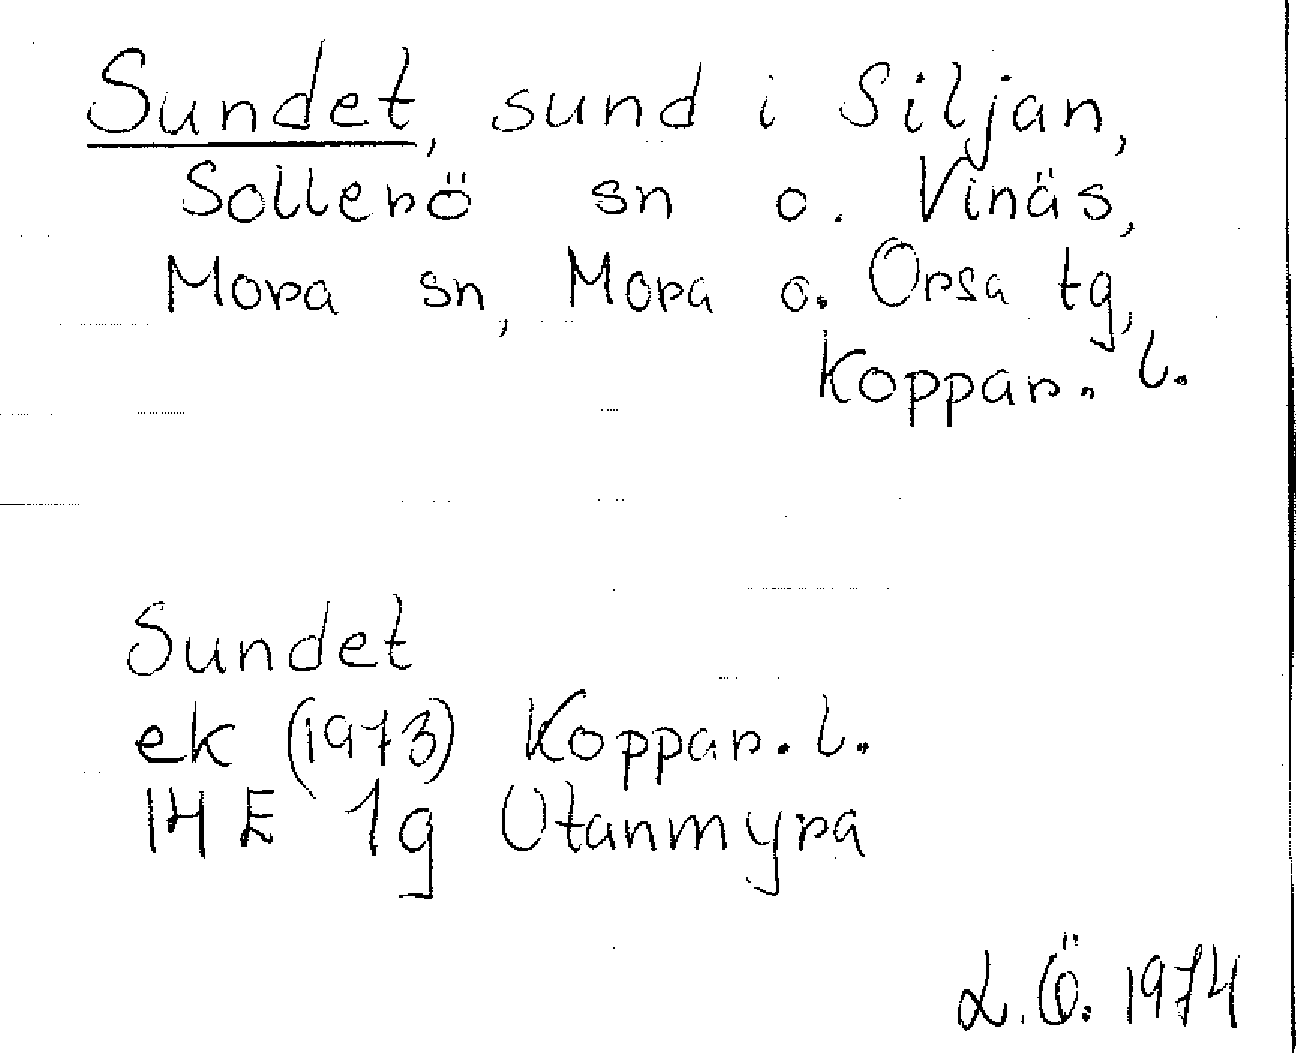 Sundet, sund i Siljan,
Sollerö sn o. Vinäs,
Mora sn, Mora o. Orsa tg,
Koppar. l.
Sundet
ek (1973) Koppar. l.
14 E 1g Utanmyra
L.Ö. 1974